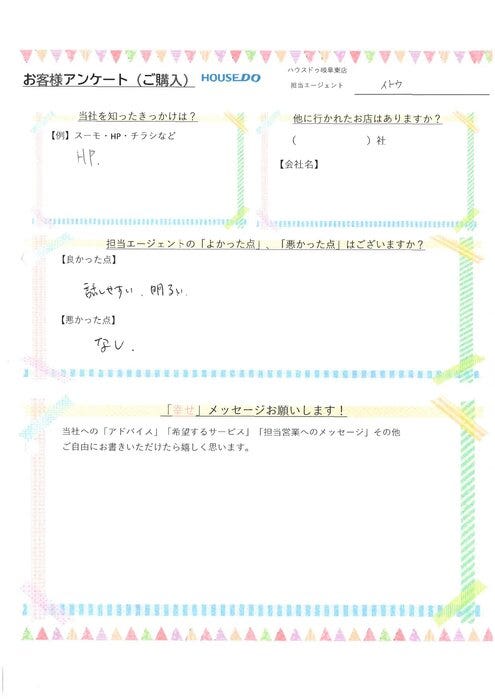 お客様アンケート（ご購入） HOUSEDO
ハウスドゥ岐阜東店
担当エージェント イトウ
当社を知ったきっかけは？
【例】スーモ・HP・チラシなど
HP.
他に行かれたお店はありますか？
（ ）社
【会社名】
担当エージェントの「よかった点」、「悪かった点」はございますか？
【良かった点】
話しやすい、明るい.
【悪かった点】
なし.
「幸せ」メッセージお願いします！
当社への「アドバイス」「希望するサービス」「担当営業へのメッセージ」その他
ご自由にお書きいただけたら嬉しく思います。